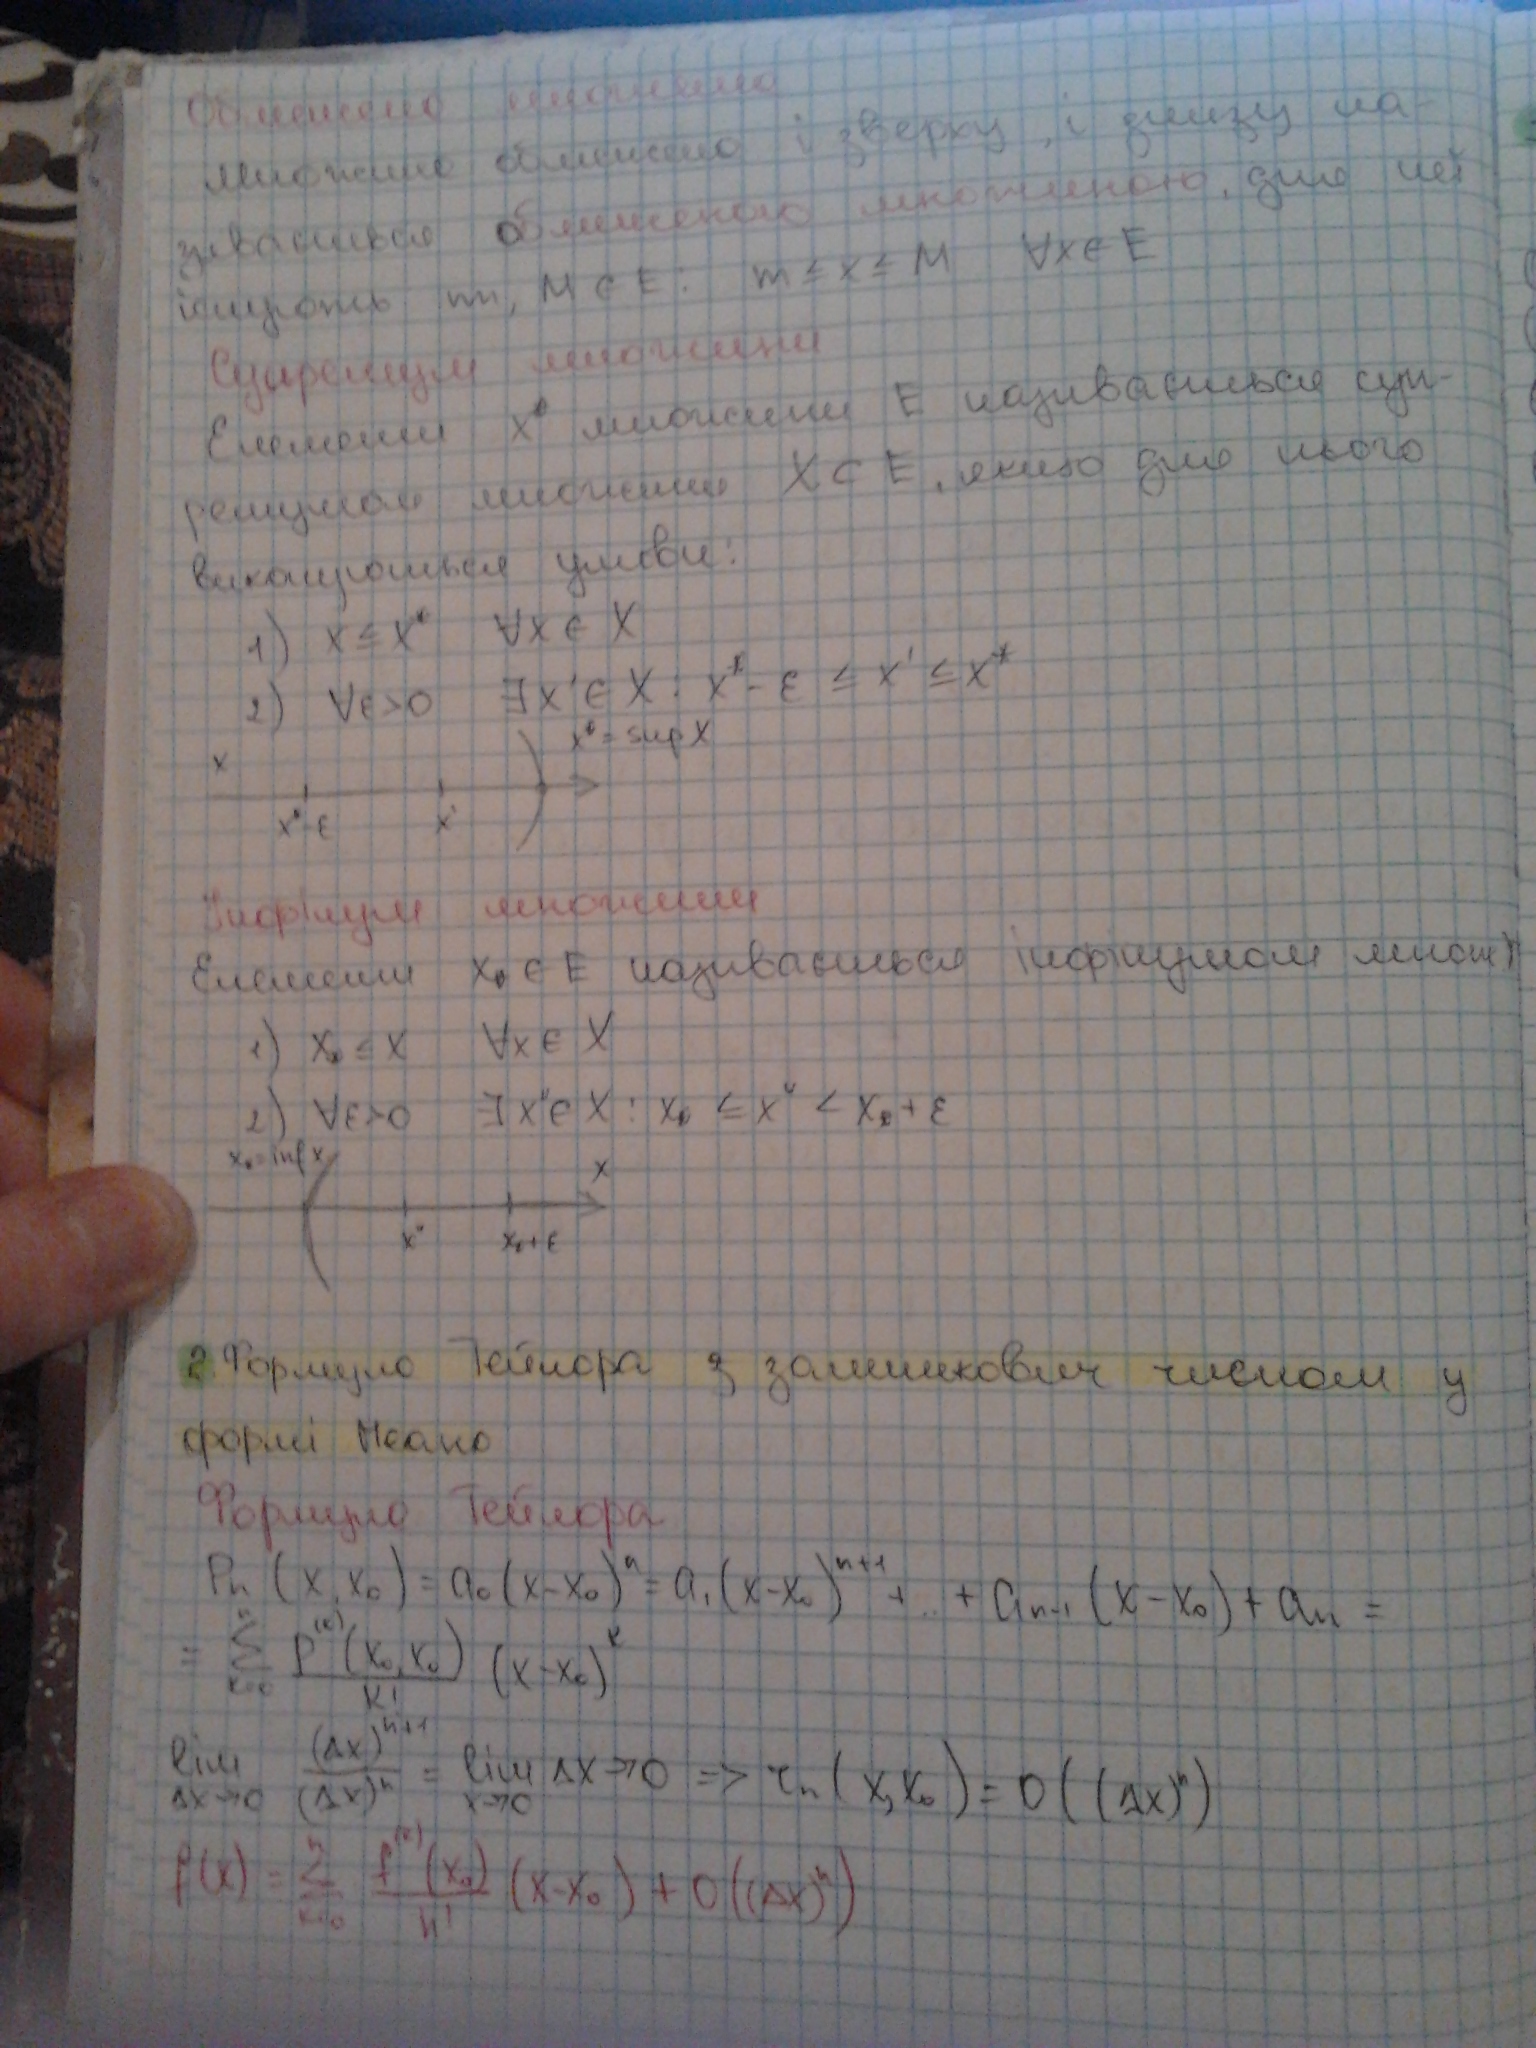 Обмежена множина
Множина обмежена і зверху, і знизу на-
зивається обмеженою множиною, для неї
існують m, M ∈ E: m ≤ x ≤ M ∀x∈E
Супремум множини
Елемент x* множини E називається суп-
ремумом множини X ⊂ E, якщо для нього
виконуються умови:
1) x ≤ x* ∀x ∈ X
2) ∀ε>0 ∃x'∈X : x*-ε ≤ x' ≤ x*
x* = sup X
x
x*-ε x'
Інфімум множини
Елемент x* ∈ E називається інфімумом множ
1) x* ≤ x ∀x∈X
2) ∀ε>0 ∃x"∈X : x* ≤ x" < x*+ε
x*=inf X x
x" x*+ε
2. Формула Тейлора з залишковим членом у
формі Пеано
Формула Тейлора
Pn (x, x₀) = a₀(x-x₀)ⁿ = a₁(x-x₀)ⁿ⁺¹ + ... + aₙ₋₁(x-x₀) + aₙ =
= Σₖ₌₀ⁿ P⁽ᵏ⁾(x₀,x₀)/k! (x-x₀)ᵏ
lim Δx→0 (Δx)ⁿ⁺¹/(Δx)ⁿ = lim x→0 Δx→0 => rₙ(x,x₀) = o((Δx)ⁿ)
f(x) = Σₖ₌₀ⁿ f⁽ᵏ⁾(x₀)/k! (x-x₀) + o((Δx)ⁿ)